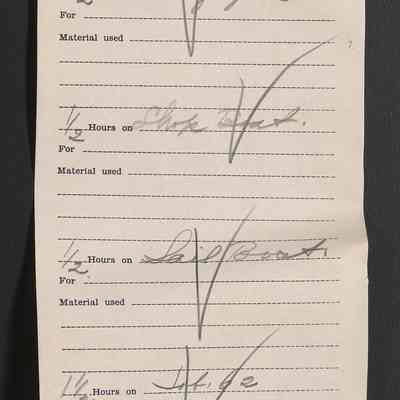 2
For
Material used
1/2 Hours on Shop Boat.
For
Material used
1/2 Hours on Sail Boat.
For
Material used
1 1/2 Hours on Job. 62